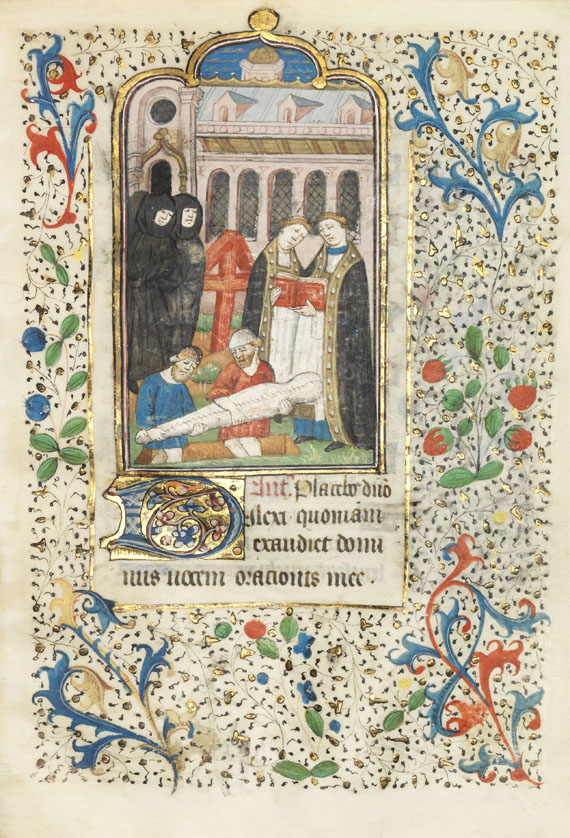 Ant. Placebo dño
Dilexi quoniam
exaudiet domi
nus uocem orationis mee.